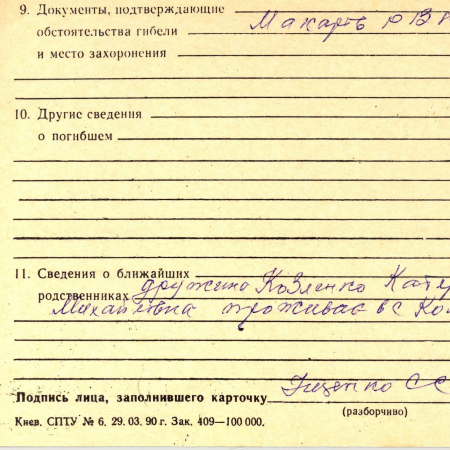 9. Документы, подтверждающие
обстоятельства гибели
и место захоронения
10. Другие сведения
о погибшем
11. Сведения о ближайших
родственниках дружина Козленко Кате
Михайлівна проживає в с Ко
Подпись лица, заполнившего карточку
(разборчиво)
Киев. СПТУ № 6. 29. 03. 90 г. Зак. 409—100 000.